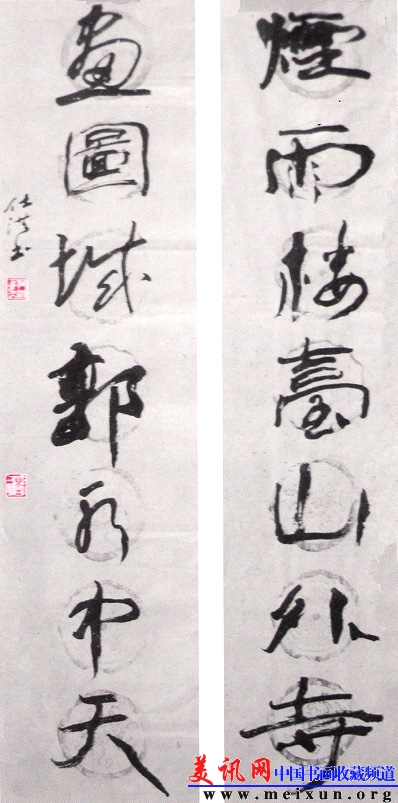 煙雨楼臺山外寺
畫圖城郭水中天
美讯网 中国书画收藏频道
www.meixun.org